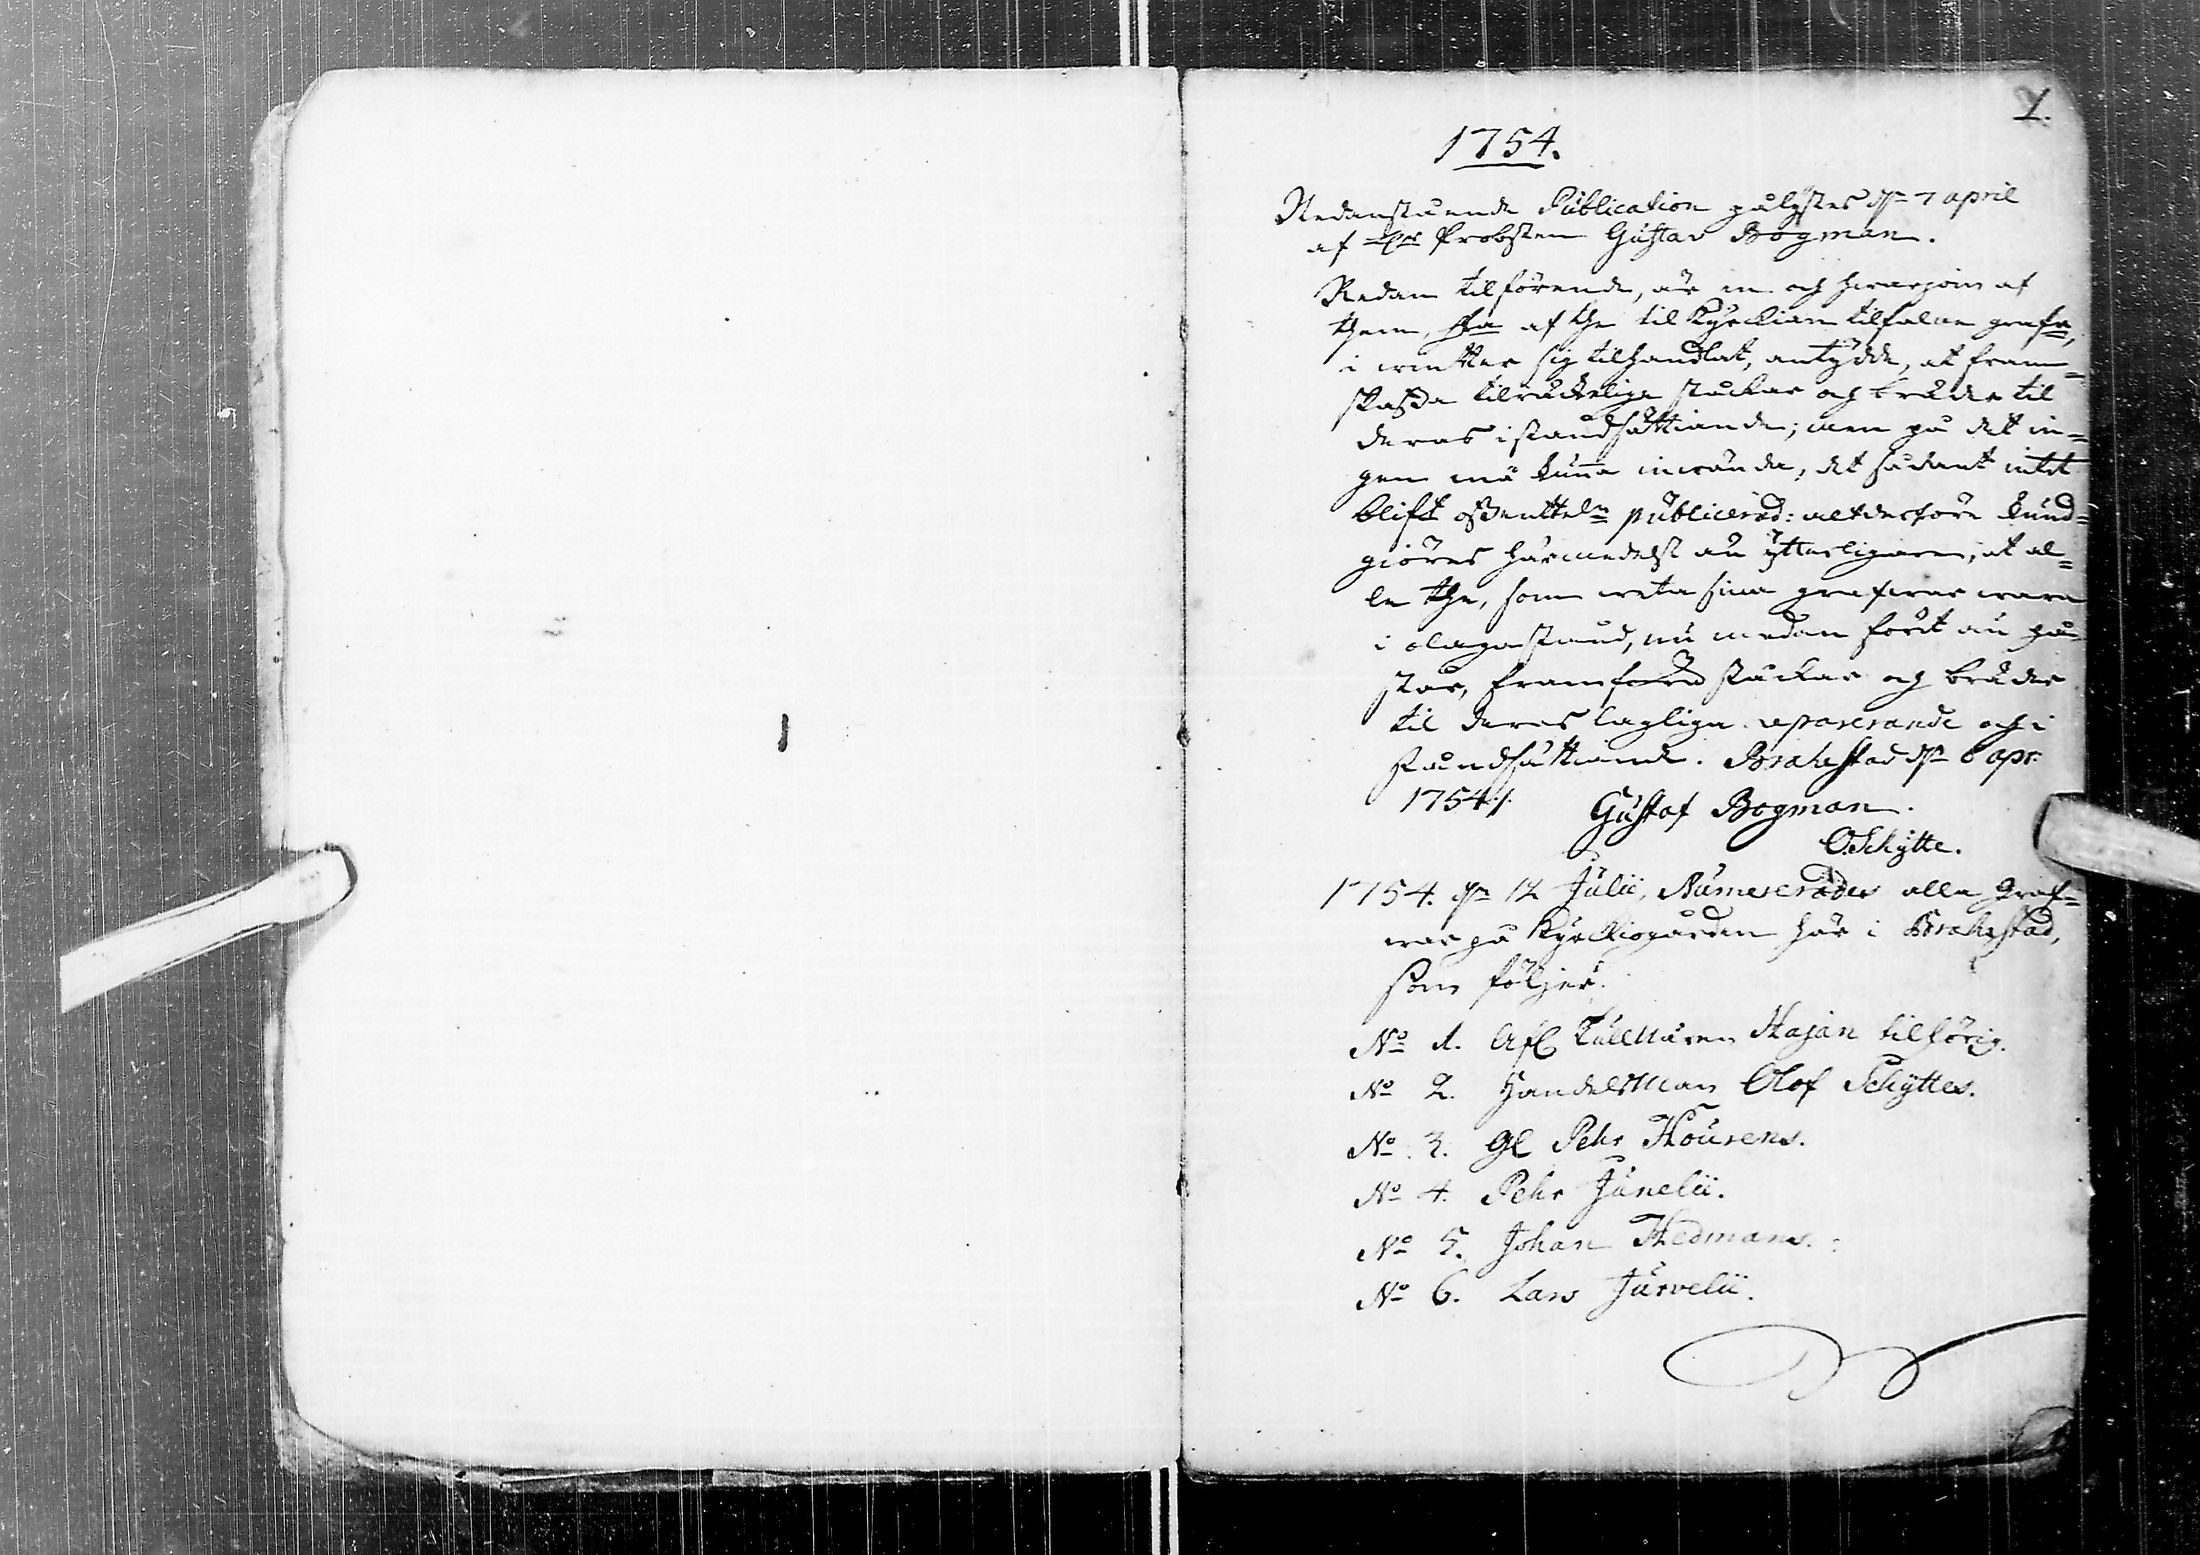 1.
1754.
Nedanstående Publication pålystes d. 7 april
af Hr Probsten Gustav Bogman.
Redan tilförende, är en och hvarjom af
them, som af the til Kyrkian tilfalne grafr,
i wintter sig tilhandlat, antydde, at fram=
skaffa tilräckelige stockar och bräder til
deras iståndsättiande; men på det in=
gen må kuña inwända, det sådant intet
blift offenttel. publicerad: altderföre kund=
giöres härmedelst än ytterligare, at al=
la the, som weta sina grafwar wara
i olagastånd, nu medan föret än på=
står, framföra stockar och bräder
til deras lagliga reparerande och i
ståndsättiande. Brahestad d. 6 apr:
1754./.
Gustaf Bogman.
O. Schytte.
1754. d. 12 Julii, Numererades alla Graf=
war på Kyrkiogården här i Brahestad,
som följer.
No 1. Afl. Tullnären Hajan tilhörig.
No 2. Handelsman Olof Schyttes.
No 3. Gl Pehr Hourens.
No 4. Pehr Junelii.
No 5. Johan Hedmans.
No 6. Lars Järvelii.